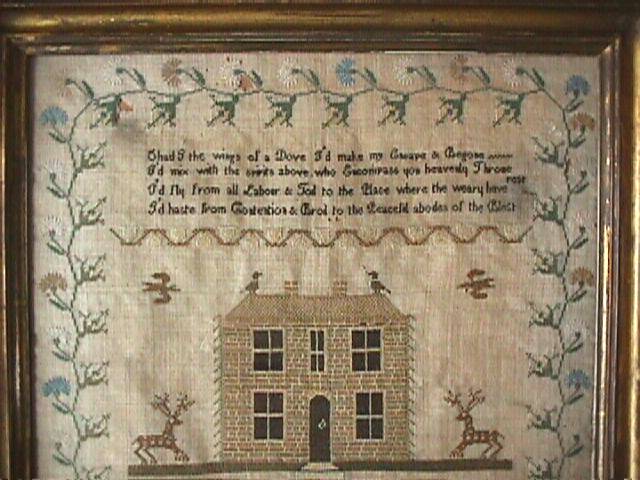 Ohad I the wings of a Dove I'd make my Escape & Begone
I'd mix with the spirits above who Encompass yon heavenly Throne
I'd fly from all Labour & Toil to the Place where the weary have rest
I'd haste from Contention & Broil to the Peaceful abodes of the Blest